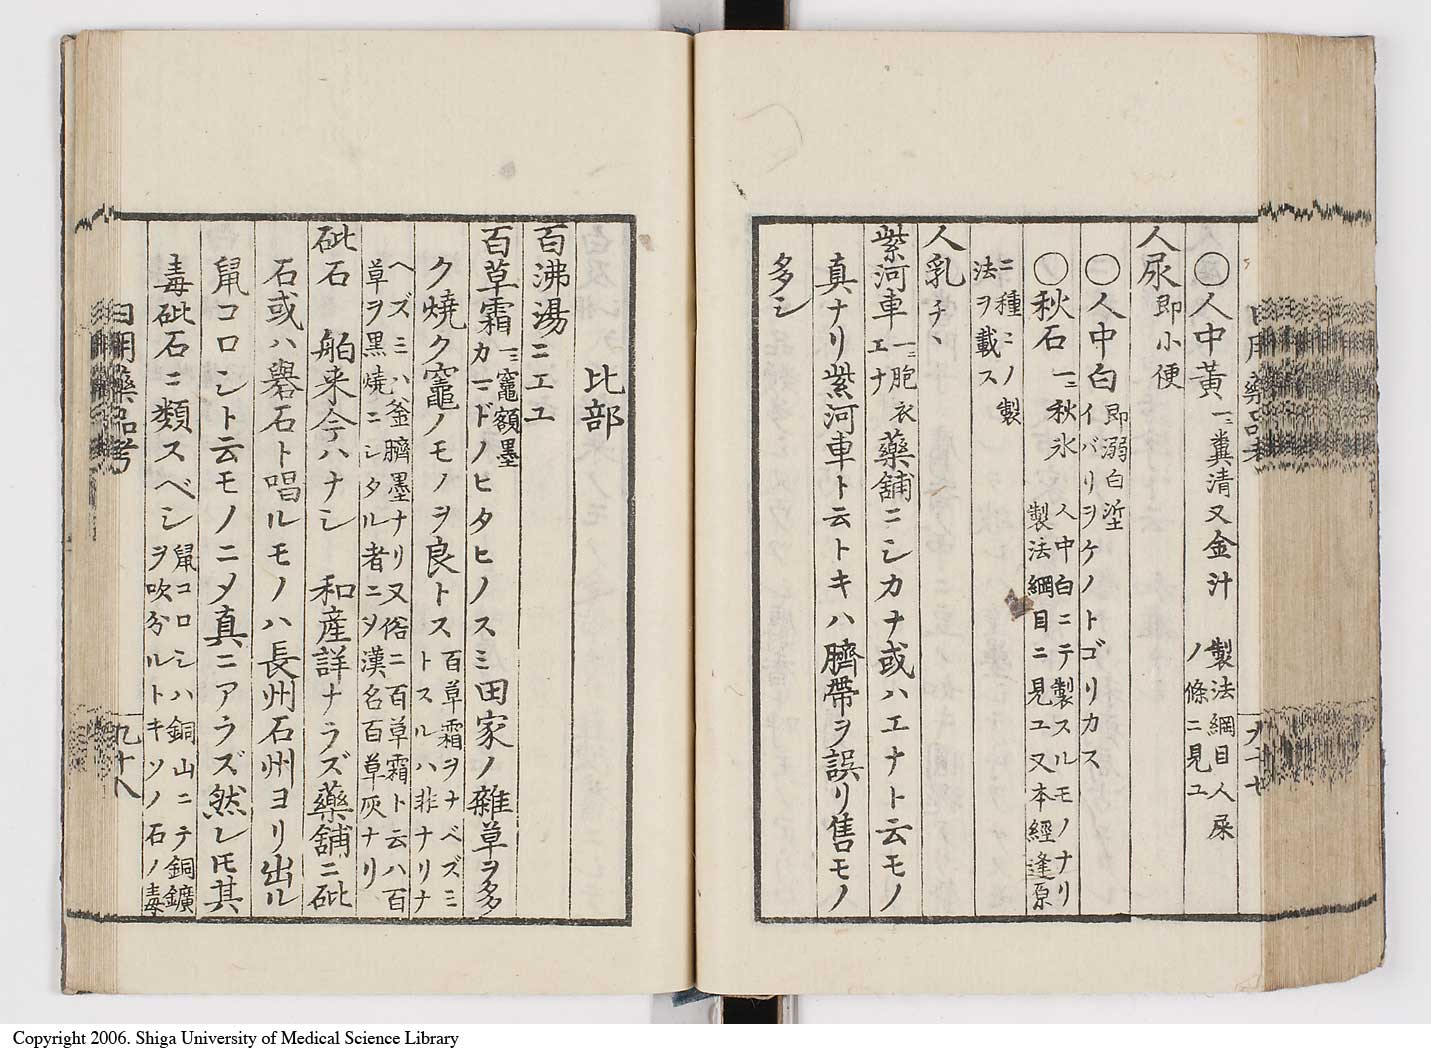 〇人中黃 一ニ糞清又金汁 製法綱目人屎ノ條ニ見ユ
人尿 即小便
〇人中白 即溺白垽 イバリヲケノトゴリカス
〇秋石 一ニ秋氷 人中白ニテ製スルモノナリ製法綱目ニ見ユ又本經逢原
ニ種ニノ製法ヲ載ス
人乳 チヽ
紫河車 一ニ胞衣 エナ 藥舖ニシカナ或ハエナト云モノ
真ナリ紫河車ト云トキハ臍帶ヲ誤リ售モノ
多シ
日用藥品考
九十七
比部
百沸湯 ニエユ
百草霜 一ニ竈額墨 カマドノヒタヒノスミ田家ノ雜草ヲ多
ク燒ク竈ノモノヲ良トス 百草霜ヲナベズミトスルハ非ナリナ
ヘズミハ釜臍墨ナリ又俗ニ百草霜ト云ハ百草ヲ黑燒ニシタル者ニヲ漢名百草灰ナリ
砒石 舶来今ハナシ 和産詳ナラズ藥舖ニ砒
石或ハ礜石ト唱ルモノハ長州石州ヨリ出ル
鼠コロシト云モノニメ真ニアラズ然レ𪜈其
毒砒石ニ類スベシ 鼠コロシハ銅山ニテ銅鑛ヲ吹分ルトキソノ石ノ毒
日用藥品考
九十八
Copyright 2006. Shiga University of Medical Science Library